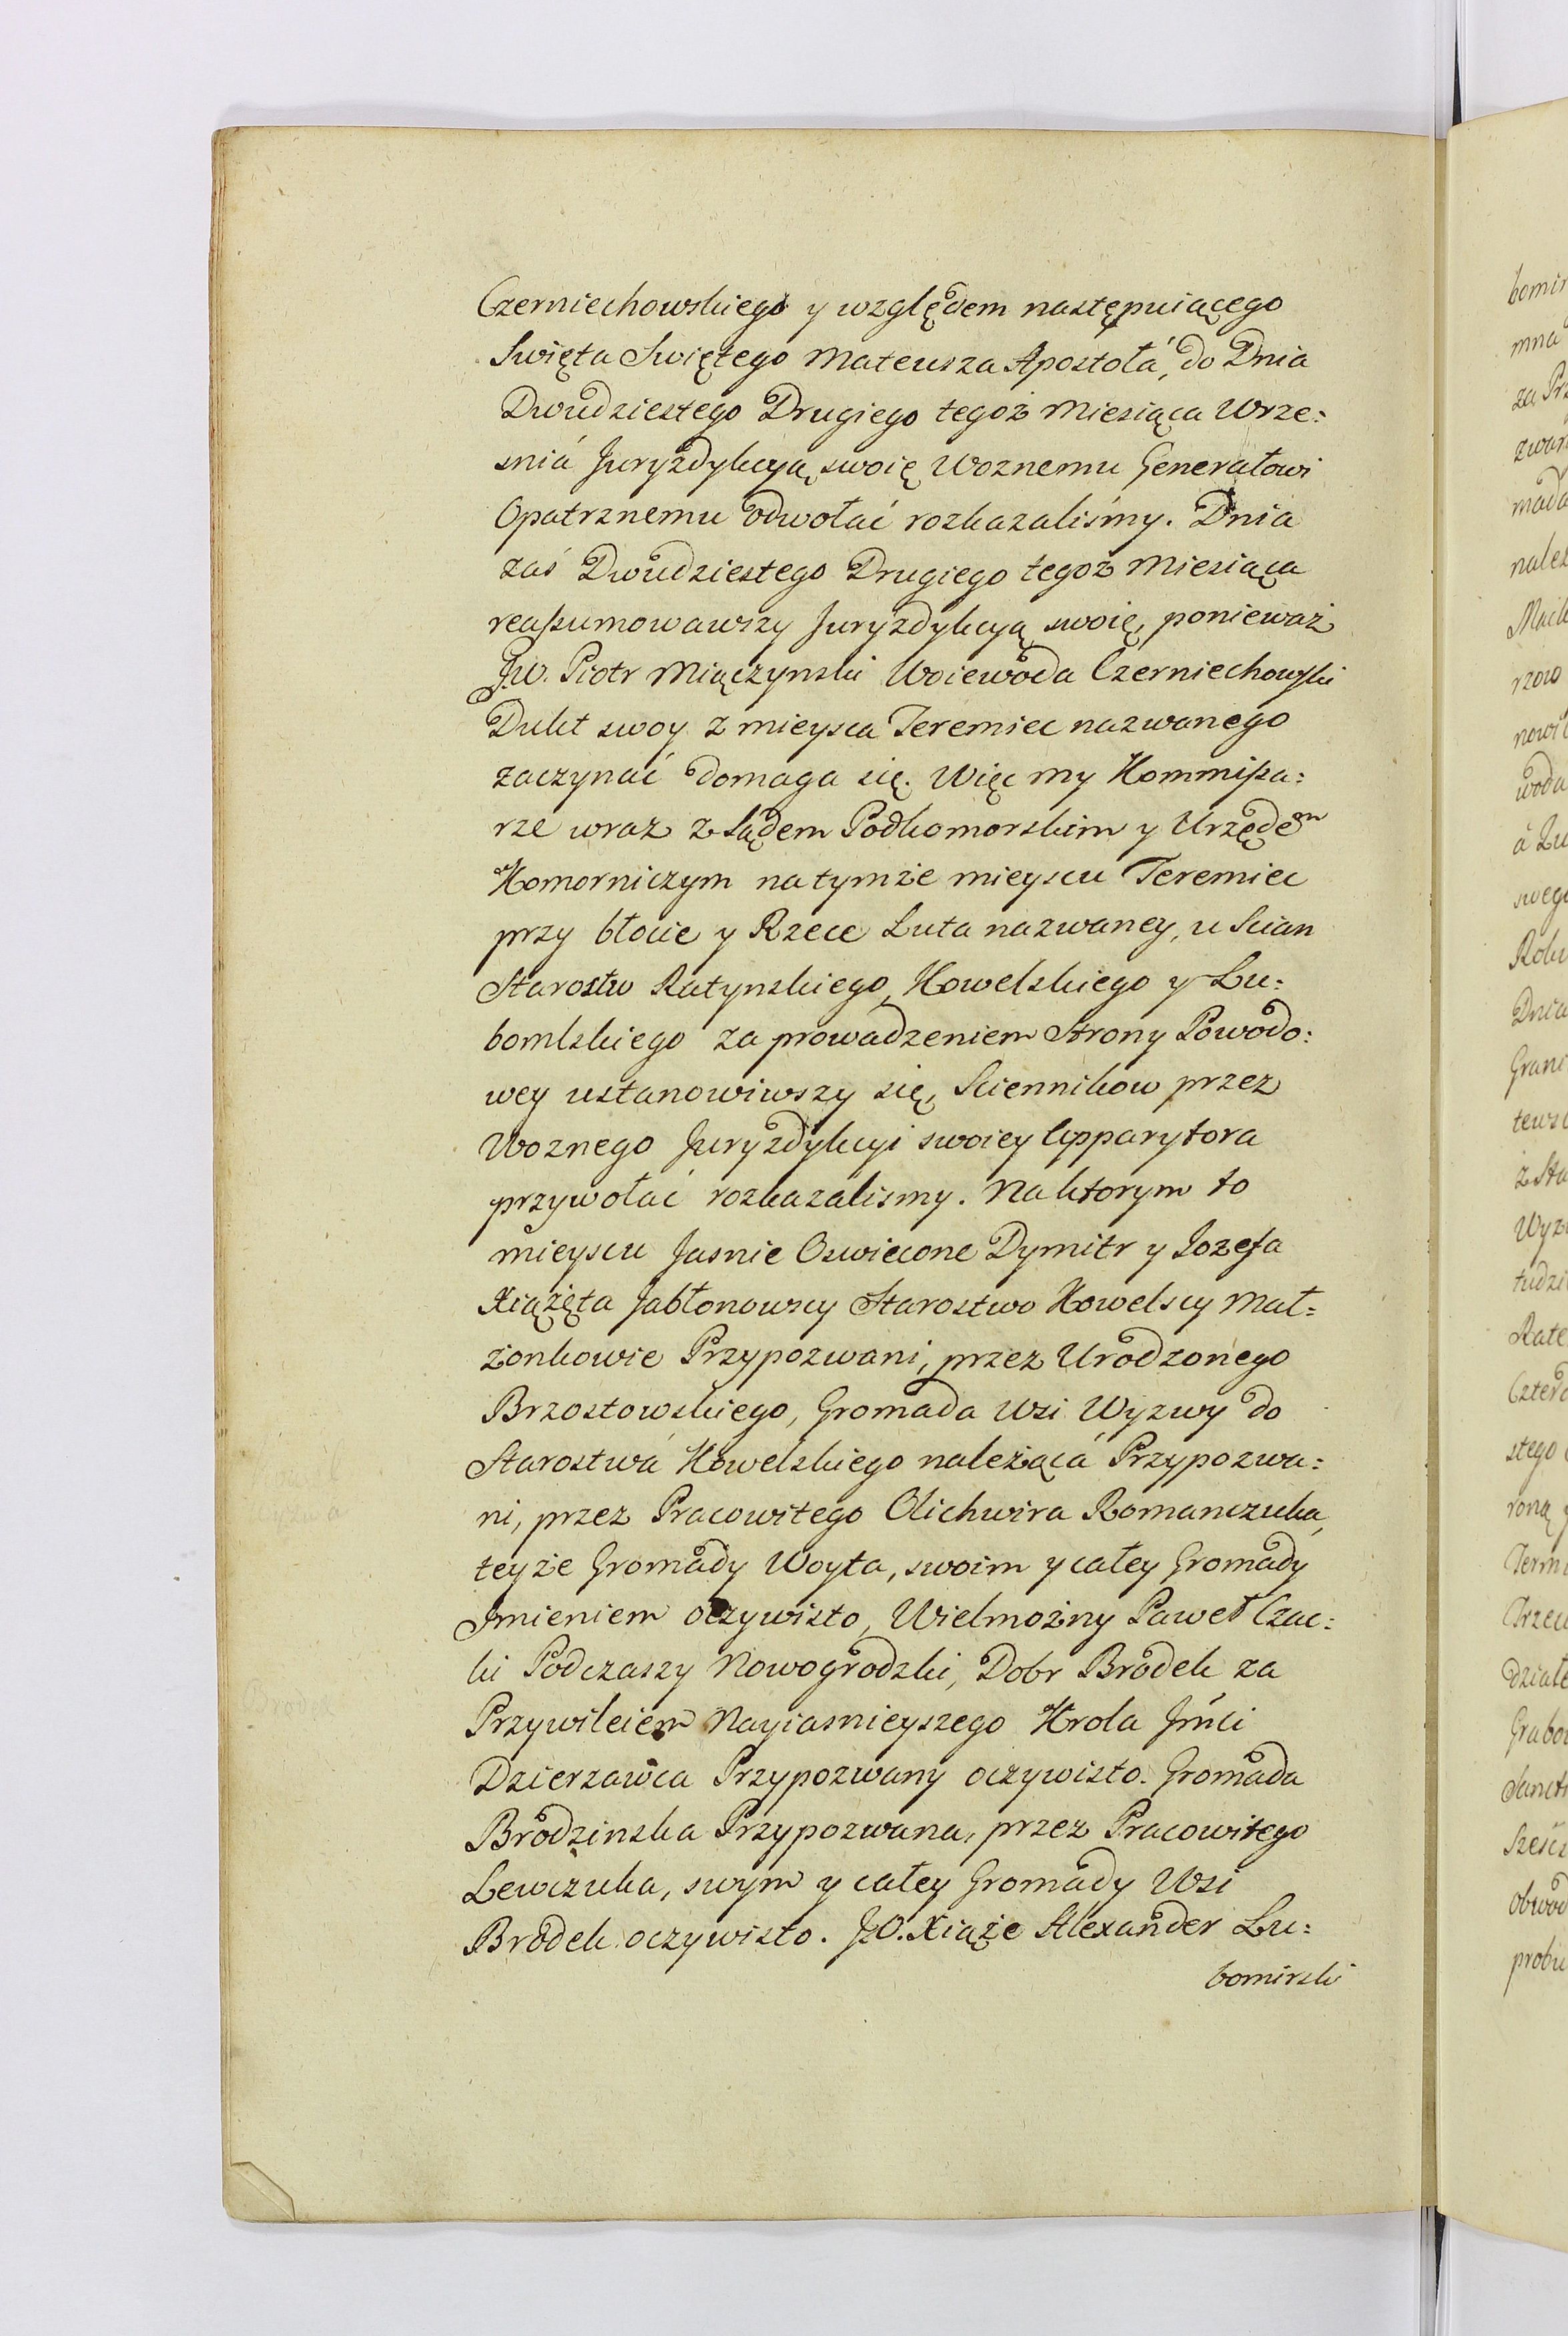 Czerniechowskiego y względem następuiącego
Swięta Swiętego Mateusza Apostołá, do Dnia
Dwudziestego Drugiego tegoż Miesiąca Wrze:
sniá Juryzdykcyą swoię Woznemu Generałowi
Opatrznemu odwołać rozkazaliśmy. Dnia
zaś Dwudziestego Drugiego tegoż Miesiąca
reaſsumowawszy Juryzdykcyą swoię, ponieważ
JW. Piotr Miączynski Woiewoda Czerniechowski
Dukt swoy z mieysca Teremiec nazwanego
zaczynać domaga się. Więc my Kommiſsa:
rze wraz z Sądem Podkomorskim y Urzędem
Komorniczym na tymże mieyscu Teremiec
przy błocie y Rzece Luta nazwaney, u Scian
Starostw Ratynskiego, Kowelskiego y Lu:
bomlskiego za prowadzeniem Strony Powodo:
wey ustanowiwszy się, Sciennikow przez
Woznego Juryzdykcyi swoiey Apparytora
przywołać rozkazalismy. Na ktorym to
mieyscu Jasnie Oswiecone Dymitr y Jozefa
Xiążęta Jabłonowscy Starostwo Kowelscy Mał=
żonkowie Przypozwani, przez Urodzonego
Brzostowskiego, Gromada Wsi Wyzwy do
Starostwá Kowelskiego należącá Przypozwa:
ni, przez Pracowitego Olichwira Romanczuka,
teyże Gromady Woyta, swoim y całey Gromady
Imieniem oczywisto, Wielmożny Paweł Czac:
ki Podczaszy Nowogrodzki, Dobr Brodek za
Przywileiem Nayiasnieyszego Krola Jmci
Dzierzawca Przypozwany oczywisto. Gromada
Brodzinska Przypozwana, przez Pracowitego
Lewczuka, swym y całey Gromady Wsi
Brodek oczywisto. J.O. Xiąże Alexander Lu:
bomirski
Brodek